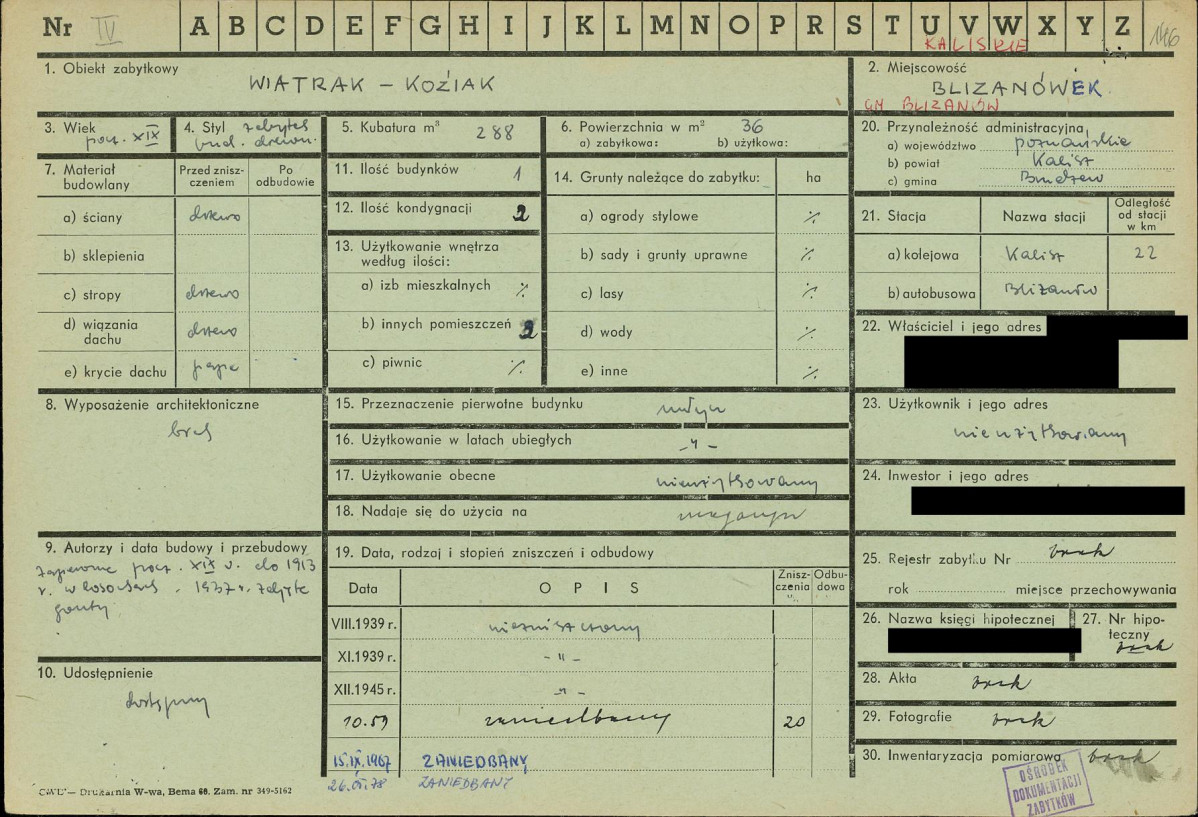 Nr IV A B C D E F G H I J K L M N O P R S T U V W X Y Z 146
KALISKIE
1. Obiekt zabytkowy
WIATRAK – KOŹLAK
2. Miejscowość
BLIZANÓWEK
GM BLIZANÓW
3. Wiek
pocz. XIX
4. Styl zabytek
bud. drewn.
5. Kubatura m³ 288
6. Powierzchnia w m² 36
a) zabytkowa: b) użytkowa:
7. Materiał budowlany
Przed zniszczeniem
Po odbudowie
a) ściany drewno
b) sklepienia
c) stropy drewno
d) wiązania dachu drewno
e) krycie dachu papa
8. Wyposażenie architektoniczne
brak
9. Autorzy i data budowy i przebudowy
zapewne pocz. XIX w. do 1913
r. w . 1937 r.
gonty
10. Udostępnienie
dostępny
11. Ilość budynków 1
12. Ilość kondygnacji 2
13. Użytkowanie wnętrza
według ilości:
a) izb mieszkalnych ·/.
b) innych pomieszczeń 2
c) piwnic ·/.
14. Grunty należące do zabytku: ha
a) ogrody stylowe ·/.
b) sady i grunty uprawne ·/.
c) lasy ·/.
d) wody ·/.
e) inne ·/.
15. Przeznaczenie pierwotne budynku młyn
16. Użytkowanie w latach ubiegłych -"-
17. Użytkowanie obecne nieużytkowany
18. Nadaje się do użycia na magazyn
19. Data, rodzaj i stopień zniszczeń i odbudowy
Data OPIS Zniszczenia "." Odbudowa
VIII.1939 r. niezniszczony
XI.1939 r. -"-
XII.1945 r. -"-
10.59 zaniedbany 20
15.IX.1967 ZANIEDBANY
26.VI.78 ZANIEDBANY
20. Przynależność administracyjna
a) województwo poznańskie
b) powiat Kalisz
c) gmina Brudzew
21. Stacja
Nazwa stacji
Odległość
od stacji
w km
a) kolejowa Kalisz 22
b) autobusowa Bliżanów
22. Właściciel i jego adres
23. Użytkownik i jego adres
nieużytkowany
24. Inwestor i jego adres
25. Rejestr zabytku Nr brak
rok miejsce przechowywania
26. Nazwa księgi hipotecznej
27. Nr hipoteczny
brak
28. Akta brak
29. Fotografie brak
30. Inwentaryzacja pomiarowa brak
OŚRODEK
DOKUMENTACJI
ZABYTKÓW
CWD — Drukarnia W-wa, Bema 60. Zam. nr 349-5162